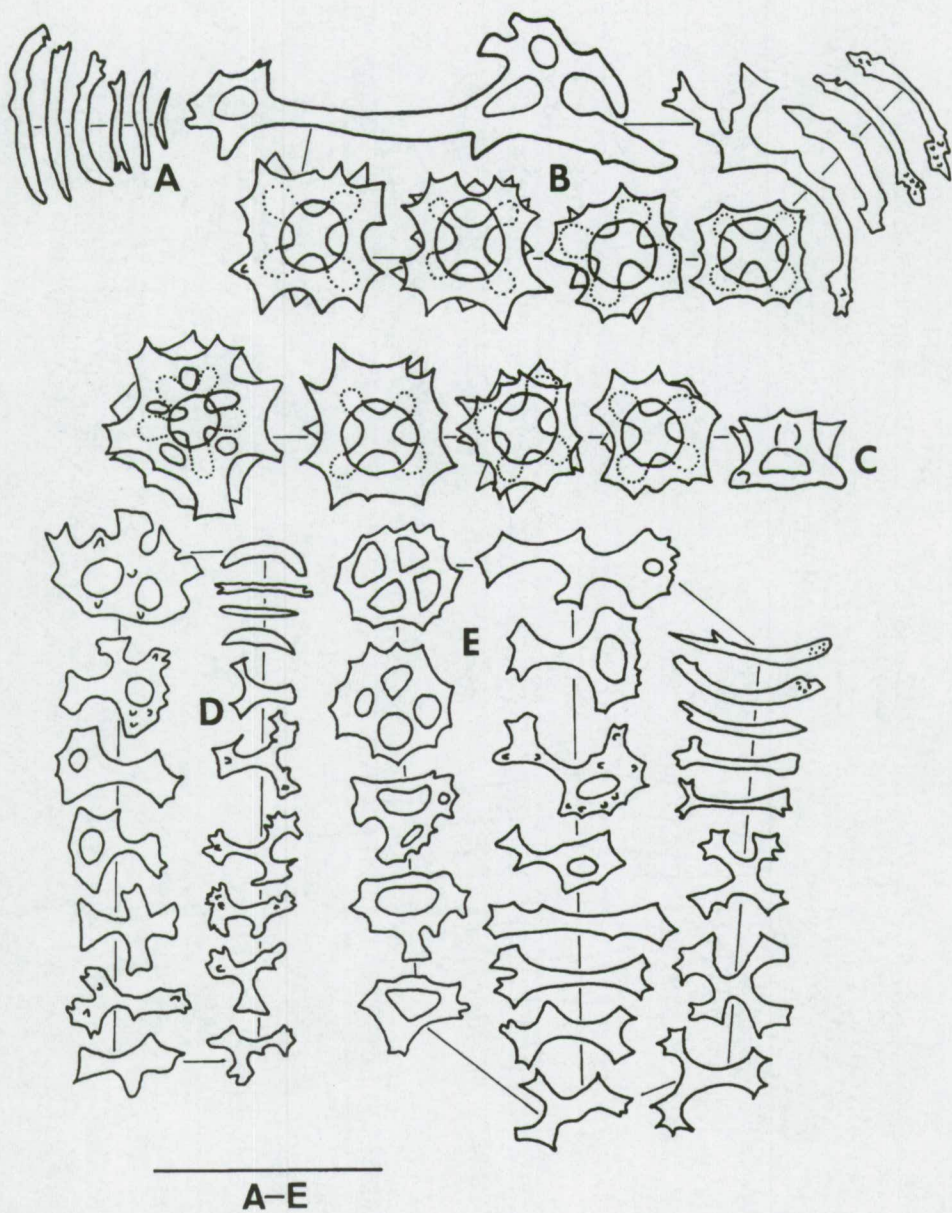 A
B
C
D
E
A–E